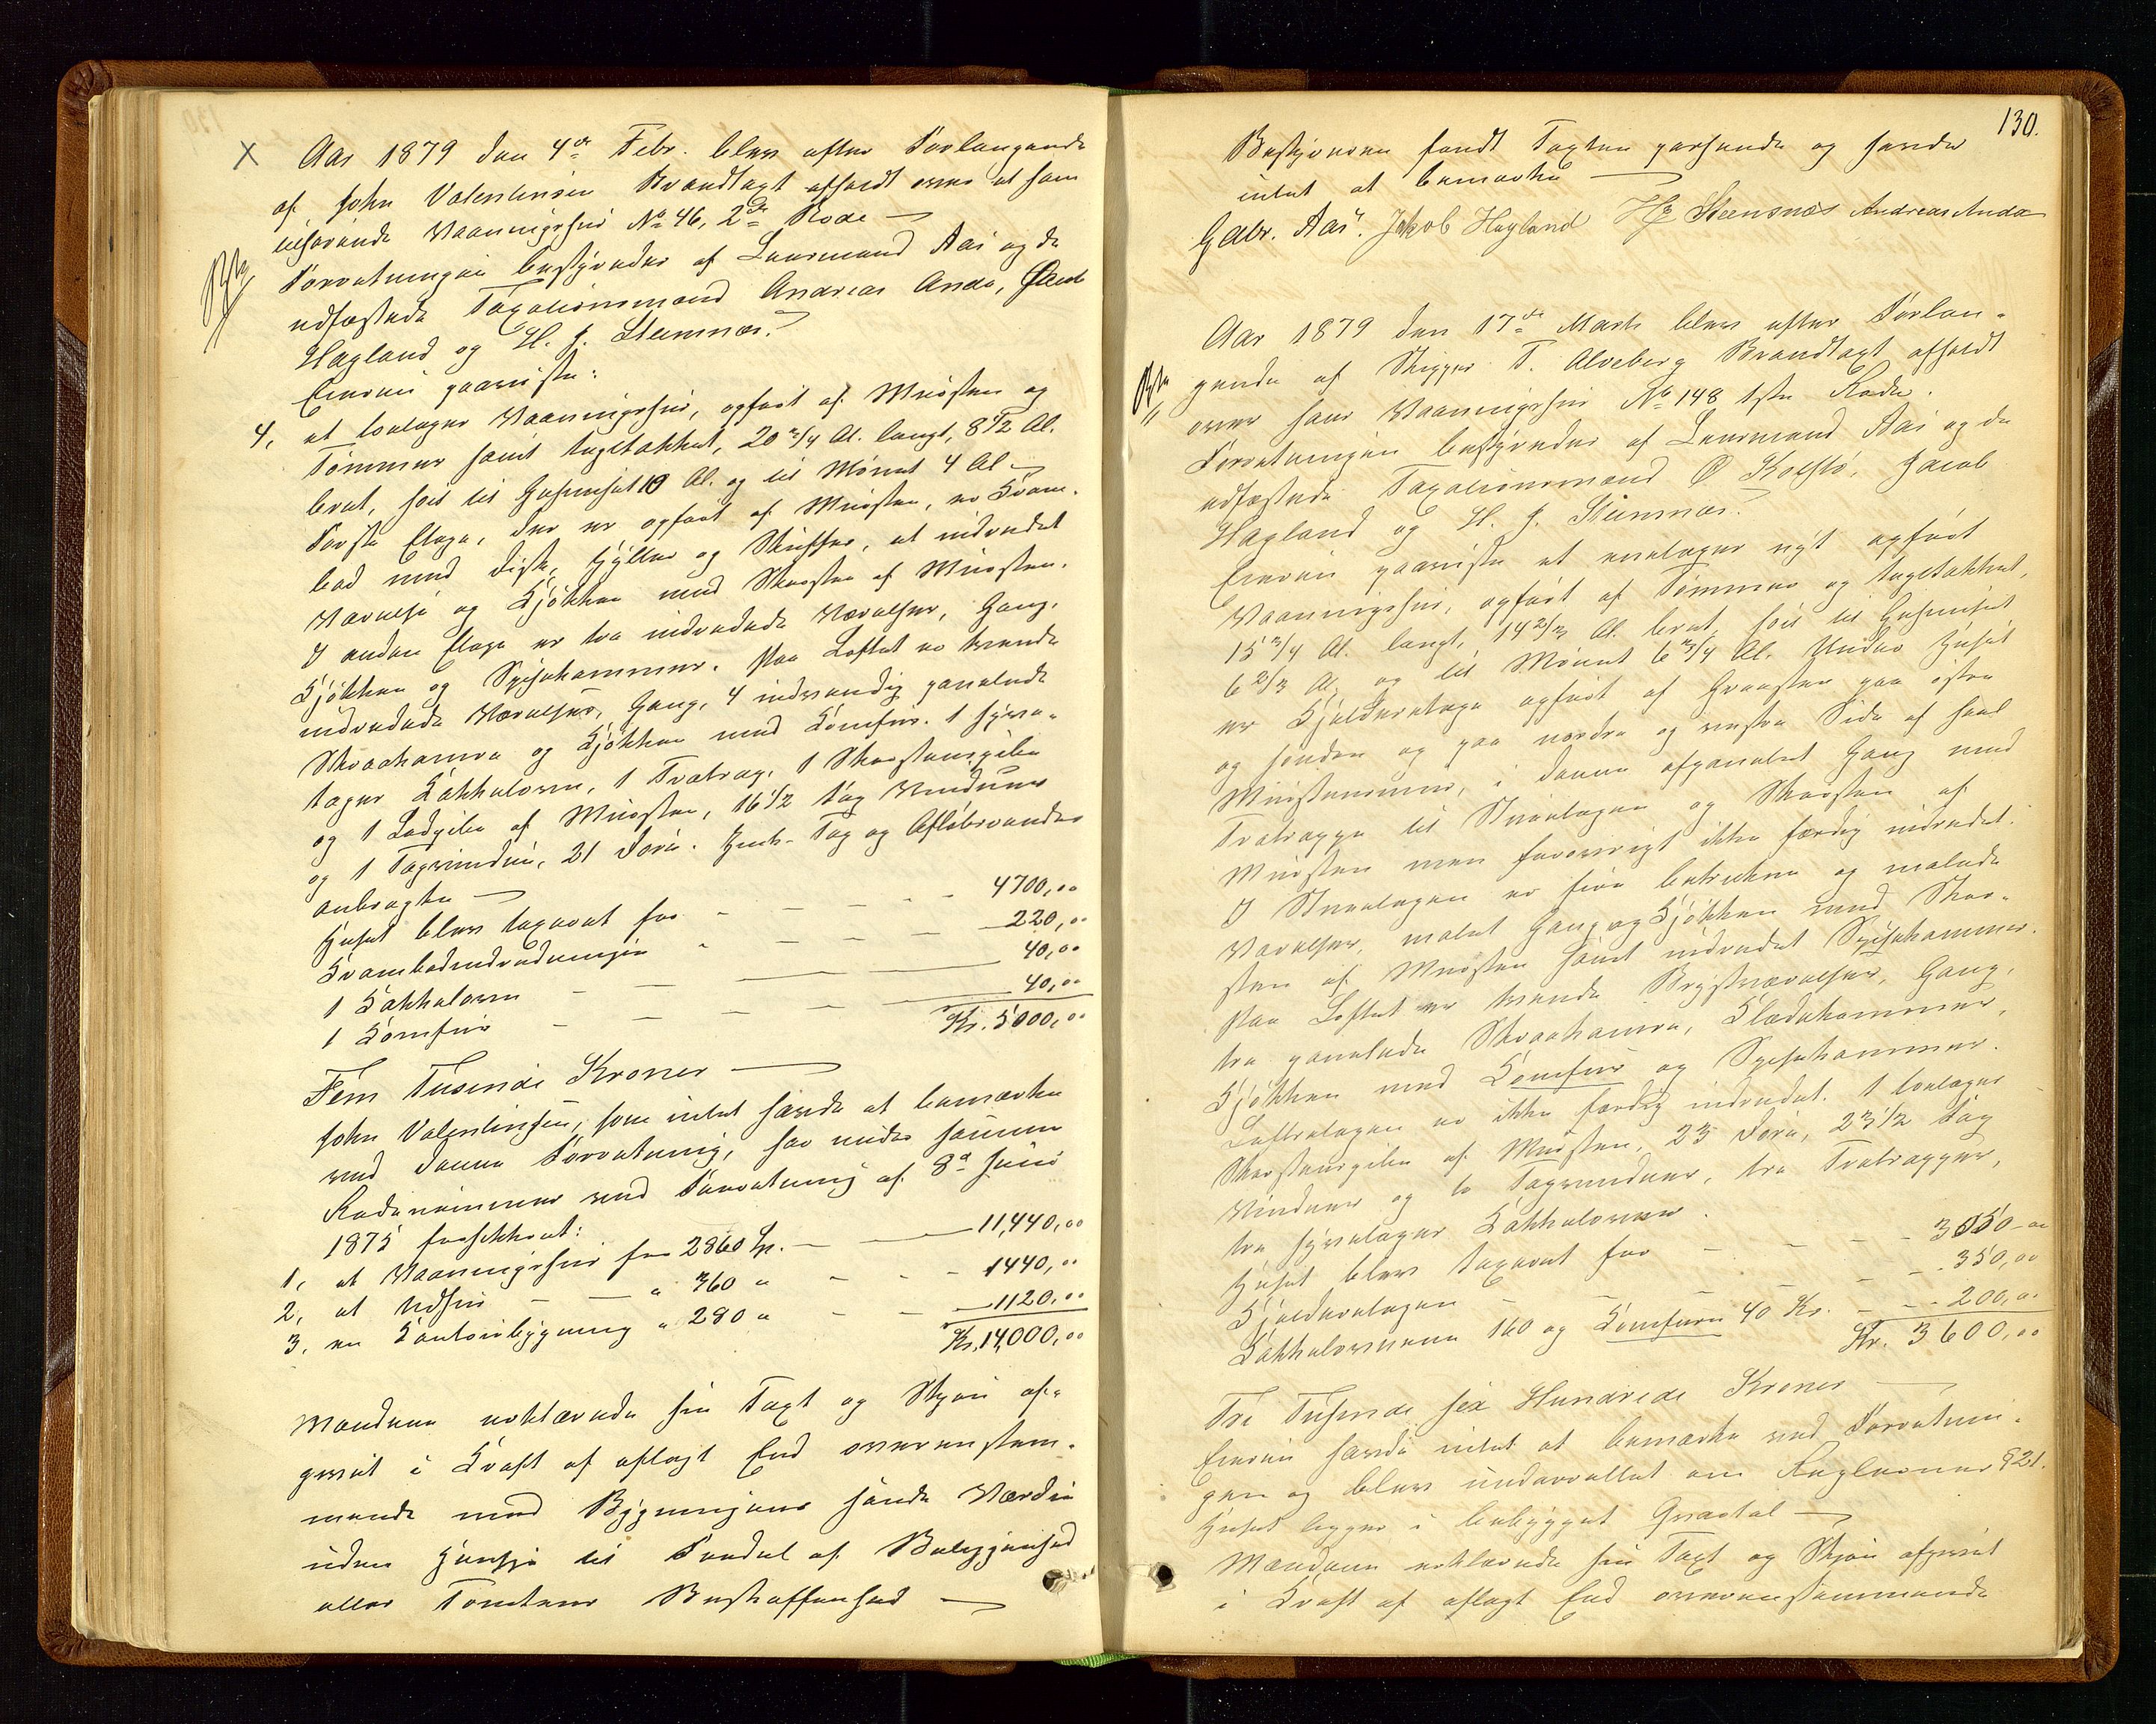 X Aar 1879 den 4de Febr. blev efter Forlangende
af John Valentinsen Brandtaxt afholdt over et ham
tilhørende Vaaningshus No 46, 2den Rode —
Forretningen bestyredes af Lensmand Aas og de
udfæstede Taxationsmænd Andreas Anda, Jacob
Hagland og H. J. Steensnæs.
Eieren paaviste:
4, et toetages Vaaningshus, opført af Mursten og
Tømmer samt tegltækket, 20 3/4 Al. langt, 8 1/2 Al.
bredt, høit til Gesimset 10 Al. og til Mønnet 4 Al —
Første Etage, der er opført af Mursten, er Kram-
bod med Disk, Hylder og Skuffer, et indredet
Værelse og Kjøkken med Skorsten af Mursten.
I anden Etage er tre indredede Værelser, Gang,
Kjøkken og Spisekammer. Paa Loftet er tvende
indredede Værelser, Gang, 4 indvendig panelede
Skraakamre og Kjøkken med Komfur. 1 fire-
tages Kakkelovn, 1 Trætrap, 1 Skorstenspibe
og 1 Ladpibe af Mursten, 16 1/2 Fag Vinduer
og 1 Tagvindue, 21 Døre. Tag og Afløbsrender
anbragte —
Huset blev taxeret for - - - - - 4700,00
Krambodindredningen - - - - 220,00
1 Kakkelovn - - - 40,00
1 Komfur - - - 40,00
Kr. 5000,00
Fem Tusinde Kroner —
John Valentinsen, som intet havde at bemærke
ved denne Forretning, har under samme
Rodenummer ved Forretning af 8de Juni
1875 forsikkret:
1, et Vaaningshus for 2860 Sp. - - 11,440,00
2, et Udhus - - " 360 " - - - 1440,00
3, en Kontorbygning " 280 " - - - 1120,00
Kr. 14,000,00
Mændene erklærede sin Taxt og Skjøn af-
givet i Kraft af aflagt Eed overenstem-
mende med Bygningens sande Værdi
uden Hensyn til Fordel af Beliggenhed
eller Tomtens Beskaffenhed —
130.
Bestyreren fandt Taxten passende og havde
intet at bemærke —
Gabr. Aas. Jakob Hagland HJ Steensnæs Andreas Anda
Aar 1879 den 17de Marts blev efter Forlan-
gende af Skipper T. Alveberg Brandtaxt afholdt
over hans Vaaningshus No 148 1ste Rode.
Forretningen bestyredes af Lensmand Aas og de
udfæstede Taxationsmænd O Kolstø, Jacob
Hagland og H. J. Steensnæs.
Eieren paaviste et enetages nyt opført
Vaaningshus, opført af Tømmer og tegltækket,
15 3/4 Al. langt, 14 2/3 Al. bredt, høit til Gesimset
6 2/3 Al. og til Mønnet 6 3/4 Al. Under Huset
er Kjælderetage opført af Graasten paa østre
og søndre og paa nordre og vestre Side af
Murstensmur, i denne afpanelet Gang med
Trætrappe til Stueetagen og Skorsten af
Mursten men forøvrigt ikke færdig indredet.
I Stueetagen er fire betrukne og malede
Værelser, malet Gang og Kjøkken med Skor-
sten af Mursten samt indredet Spisekammer.
Paa Loftet er tvende Værelser, Gang,
tre panelede Skraakamre, Klædekammer,
Kjøkken med Komfur og Spisekammer.
Loftsetagen er ikke færdig indredet. 1 toetages
Skorstenspibe af Mursten, 23 Døre, 23 1/2 Fag
Vinduer og to Tagvinduer, tre Trætrapper,
tre fireetages Kakkelovne.
Huset blev taxeret for - - - - 3050,00
Kjælderetagen - - - - 350,00
Kakkelovnene 160 og Komfuren 40 Kr. - - - 200,00
Kr. 3600,00
Tre Tusinde sex Hundrede Kroner —
Eieren havde intet at bemærke ved Forretnin-
gen og blev underrettet om Reglernes § 21.
Huset ligger i bebygget Qvartal —
Mændene erklærede sin Taxt og Skjøn afgivet
i Kraft af aflagt Eed overenstemmende